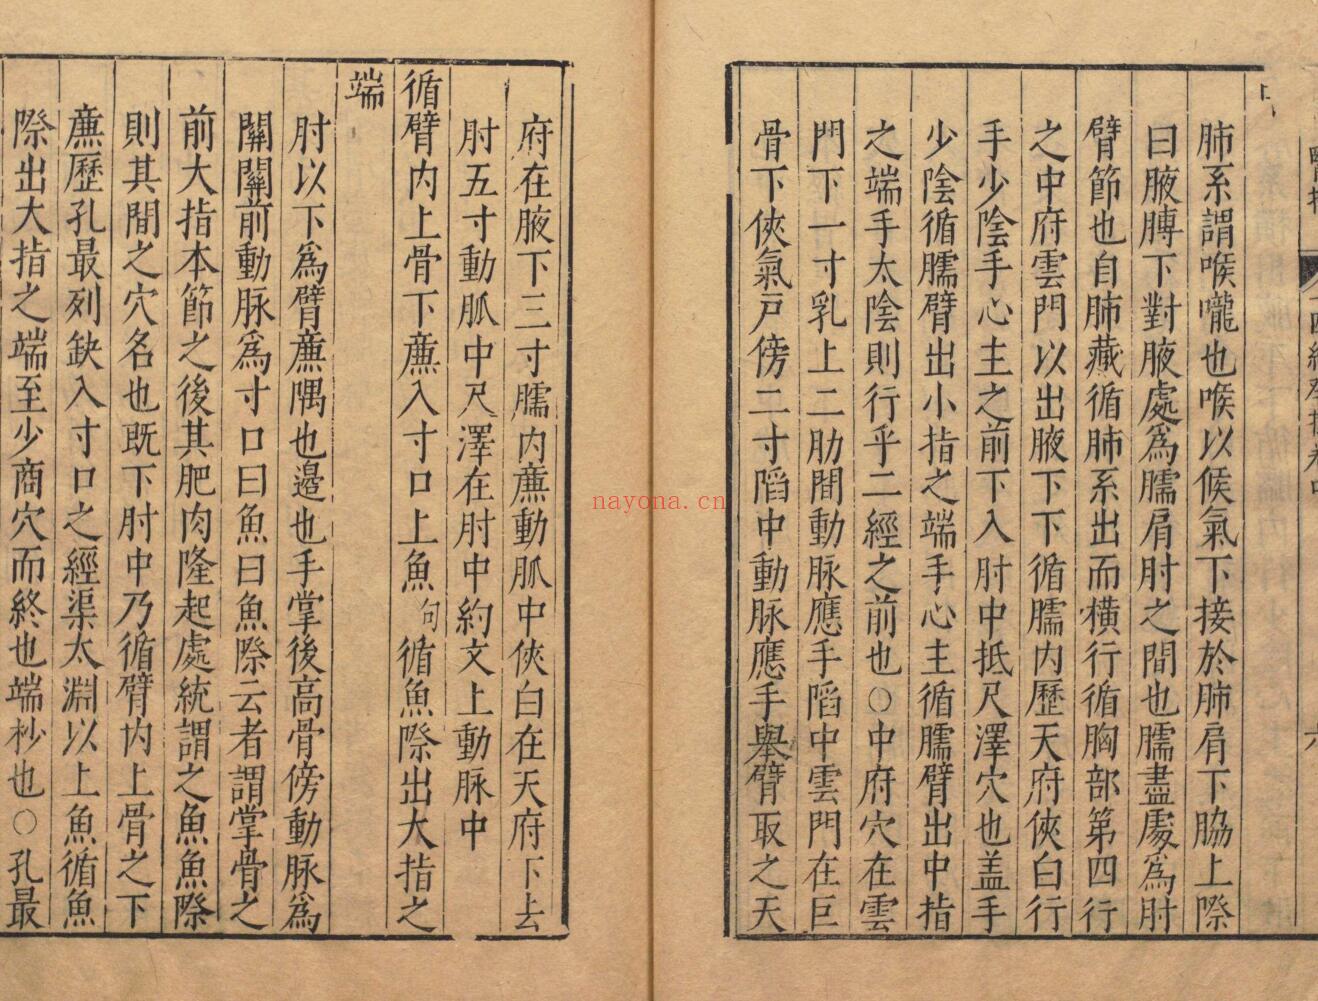 肺系謂喉嚨也喉以候氣下接於肺肩下脇上際
曰腋膊下對腋處爲臑肩肘之間也臑盡處爲肘
臂節也自肺藏循肺系出而橫行循胸部第四行
之中府雲門以出腋下下循臑内歷天府俠白行
手少陰手心主之前下入肘中抵尺澤穴也盖手
少陰循臑臂出小指之端手心主循臑臂出中指
之端手太陰則行乎二經之前也○中府穴在雲
門下一寸乳上二肋間動脉應手陷中雲門在巨
骨下俠氣戶傍二寸陷中動脉應手舉臂取之天
府在腋下三寸臑内廉動脈中俠白在天府下去
肘五寸動脈中尺澤在肘中約文上動脉中
循臂内上骨下廉入寸口上魚句循魚際出大指之
端
肘以下爲臂廉隅也邉也手掌後高骨傍動脉爲
關關前動脉爲寸口曰魚曰魚際云者謂掌骨之
前大指本節之後其肥肉隆起處統謂之魚魚際
則其間之穴名也既下肘中乃循臂内上骨之下
廉歷孔最列缺入寸口之經渠太淵以上魚循魚
際出大指之端至少商穴而終也端杪也○孔最
nayona.cn